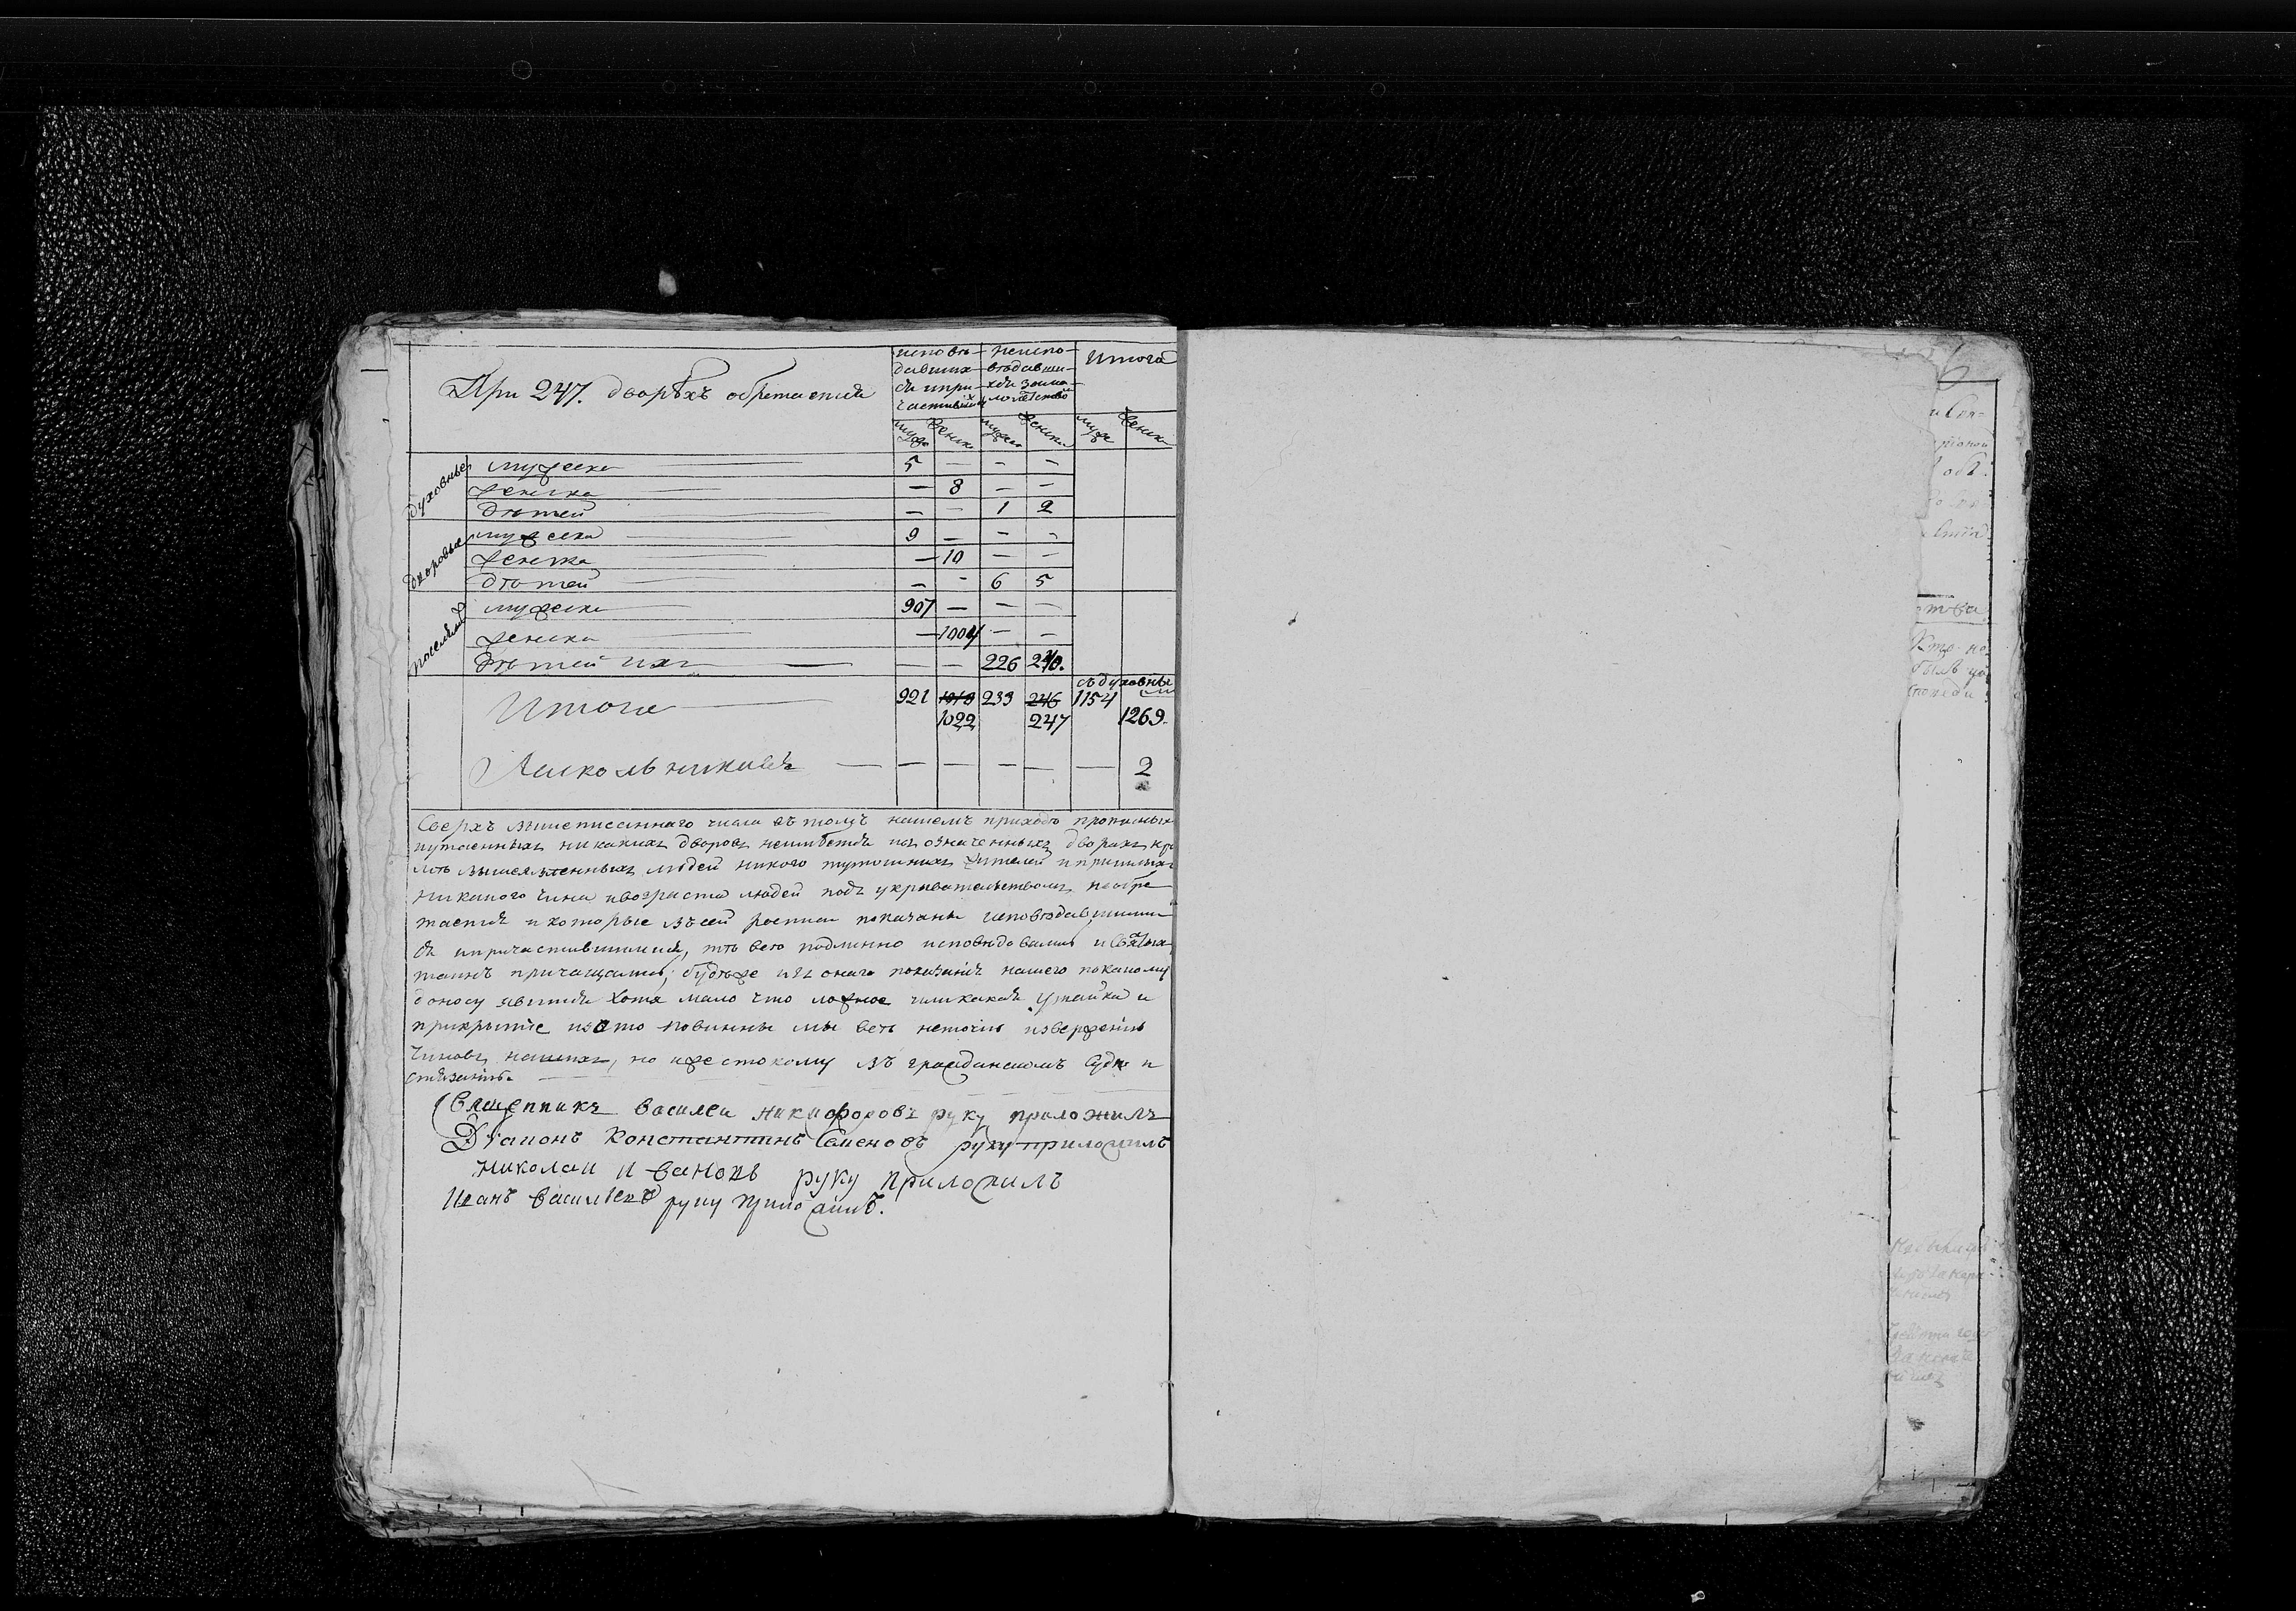 исповѣ- неиспо- Итого
давших- вѣдавши-
При 247. дворѣхъ обретается ся и при- хся за ма-
частивших лолѣтство
мужс женск мужск женск муж женск
духовные мужеска — 5 — — —
женска — — 8 — —
дѣтей — — — 1 2
дворовые мужеска — 9 — — —
женска — — 10 — —
дѣтей — — — 6 5
поселян мужеска — 907 — — —
женска — — 1004 — —
дѣтей ихъ — — — 226 240.
съ духовными
Итого — 921 1018 233 246 1154
1022 247 1269.
Раскольниковъ — — — — — — 2
Сверхъ вышеписаннаго числа въ томъ нашемъ приходѣ прописных
и утаенныхъ никакихъ дворовъ неимѣется и в означенныхъ дворахъ кро
мѣ вышеявленныхъ людей никого тутошнихъ жителей и пришлых
никакого чина и возраста людей подъ укрывательствомъ необре
тается и которые въ сей росписи показаны исповѣдавшими
ся и причастившимися, тѣ всѣ подлинно исповѣдовались и святых
таинъ причащались; будѣже изъ онаго показания нашего по какому
доносу явится хотя мало что ложное или какая утайка и
прикрытие и за то повинны мы всѣ неточию извержению
чиновъ нашихъ, но и жестокому въ гражданскомъ судѣ и
стязанию.
Священникъ Василеи Никифоровъ руку приложилъ
Дьяконъ Константинъ Семеновъ руку приложилъ
Николаи Ивановъ руку приложилъ
Иванъ Васильевъ руку приложилъ.